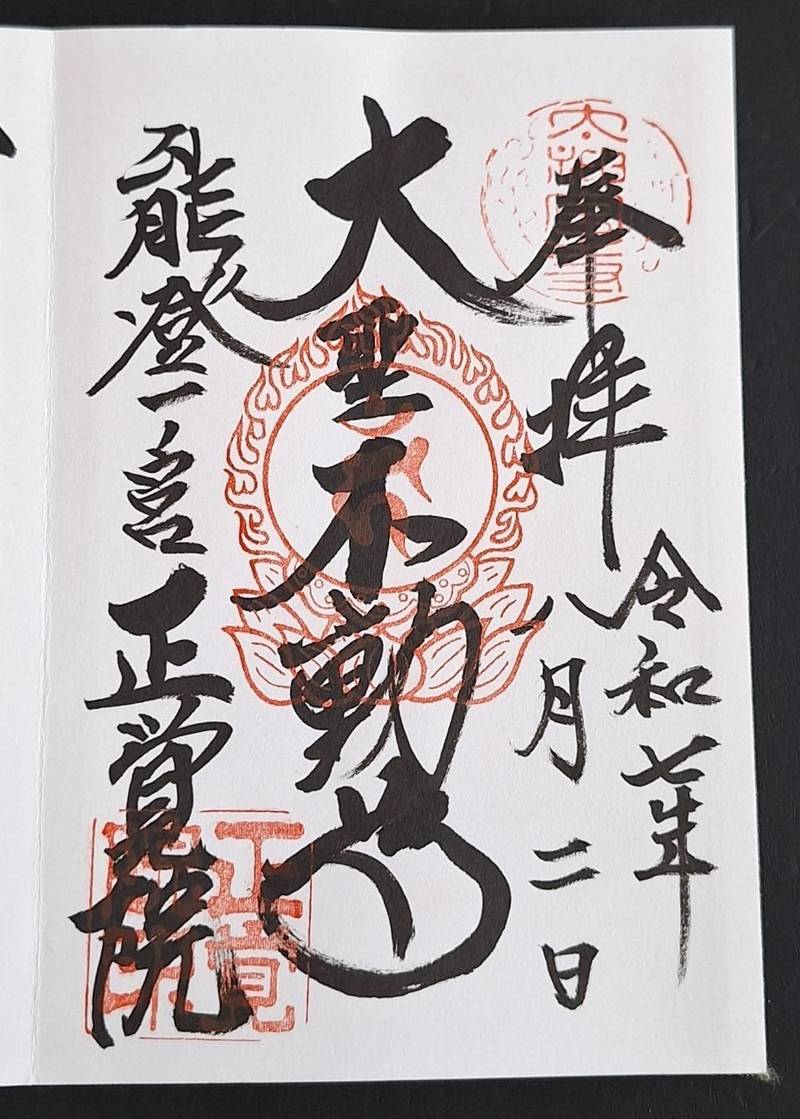 奉拝
令和七年
八月二日
大聖不動
能登一宮 正覚院